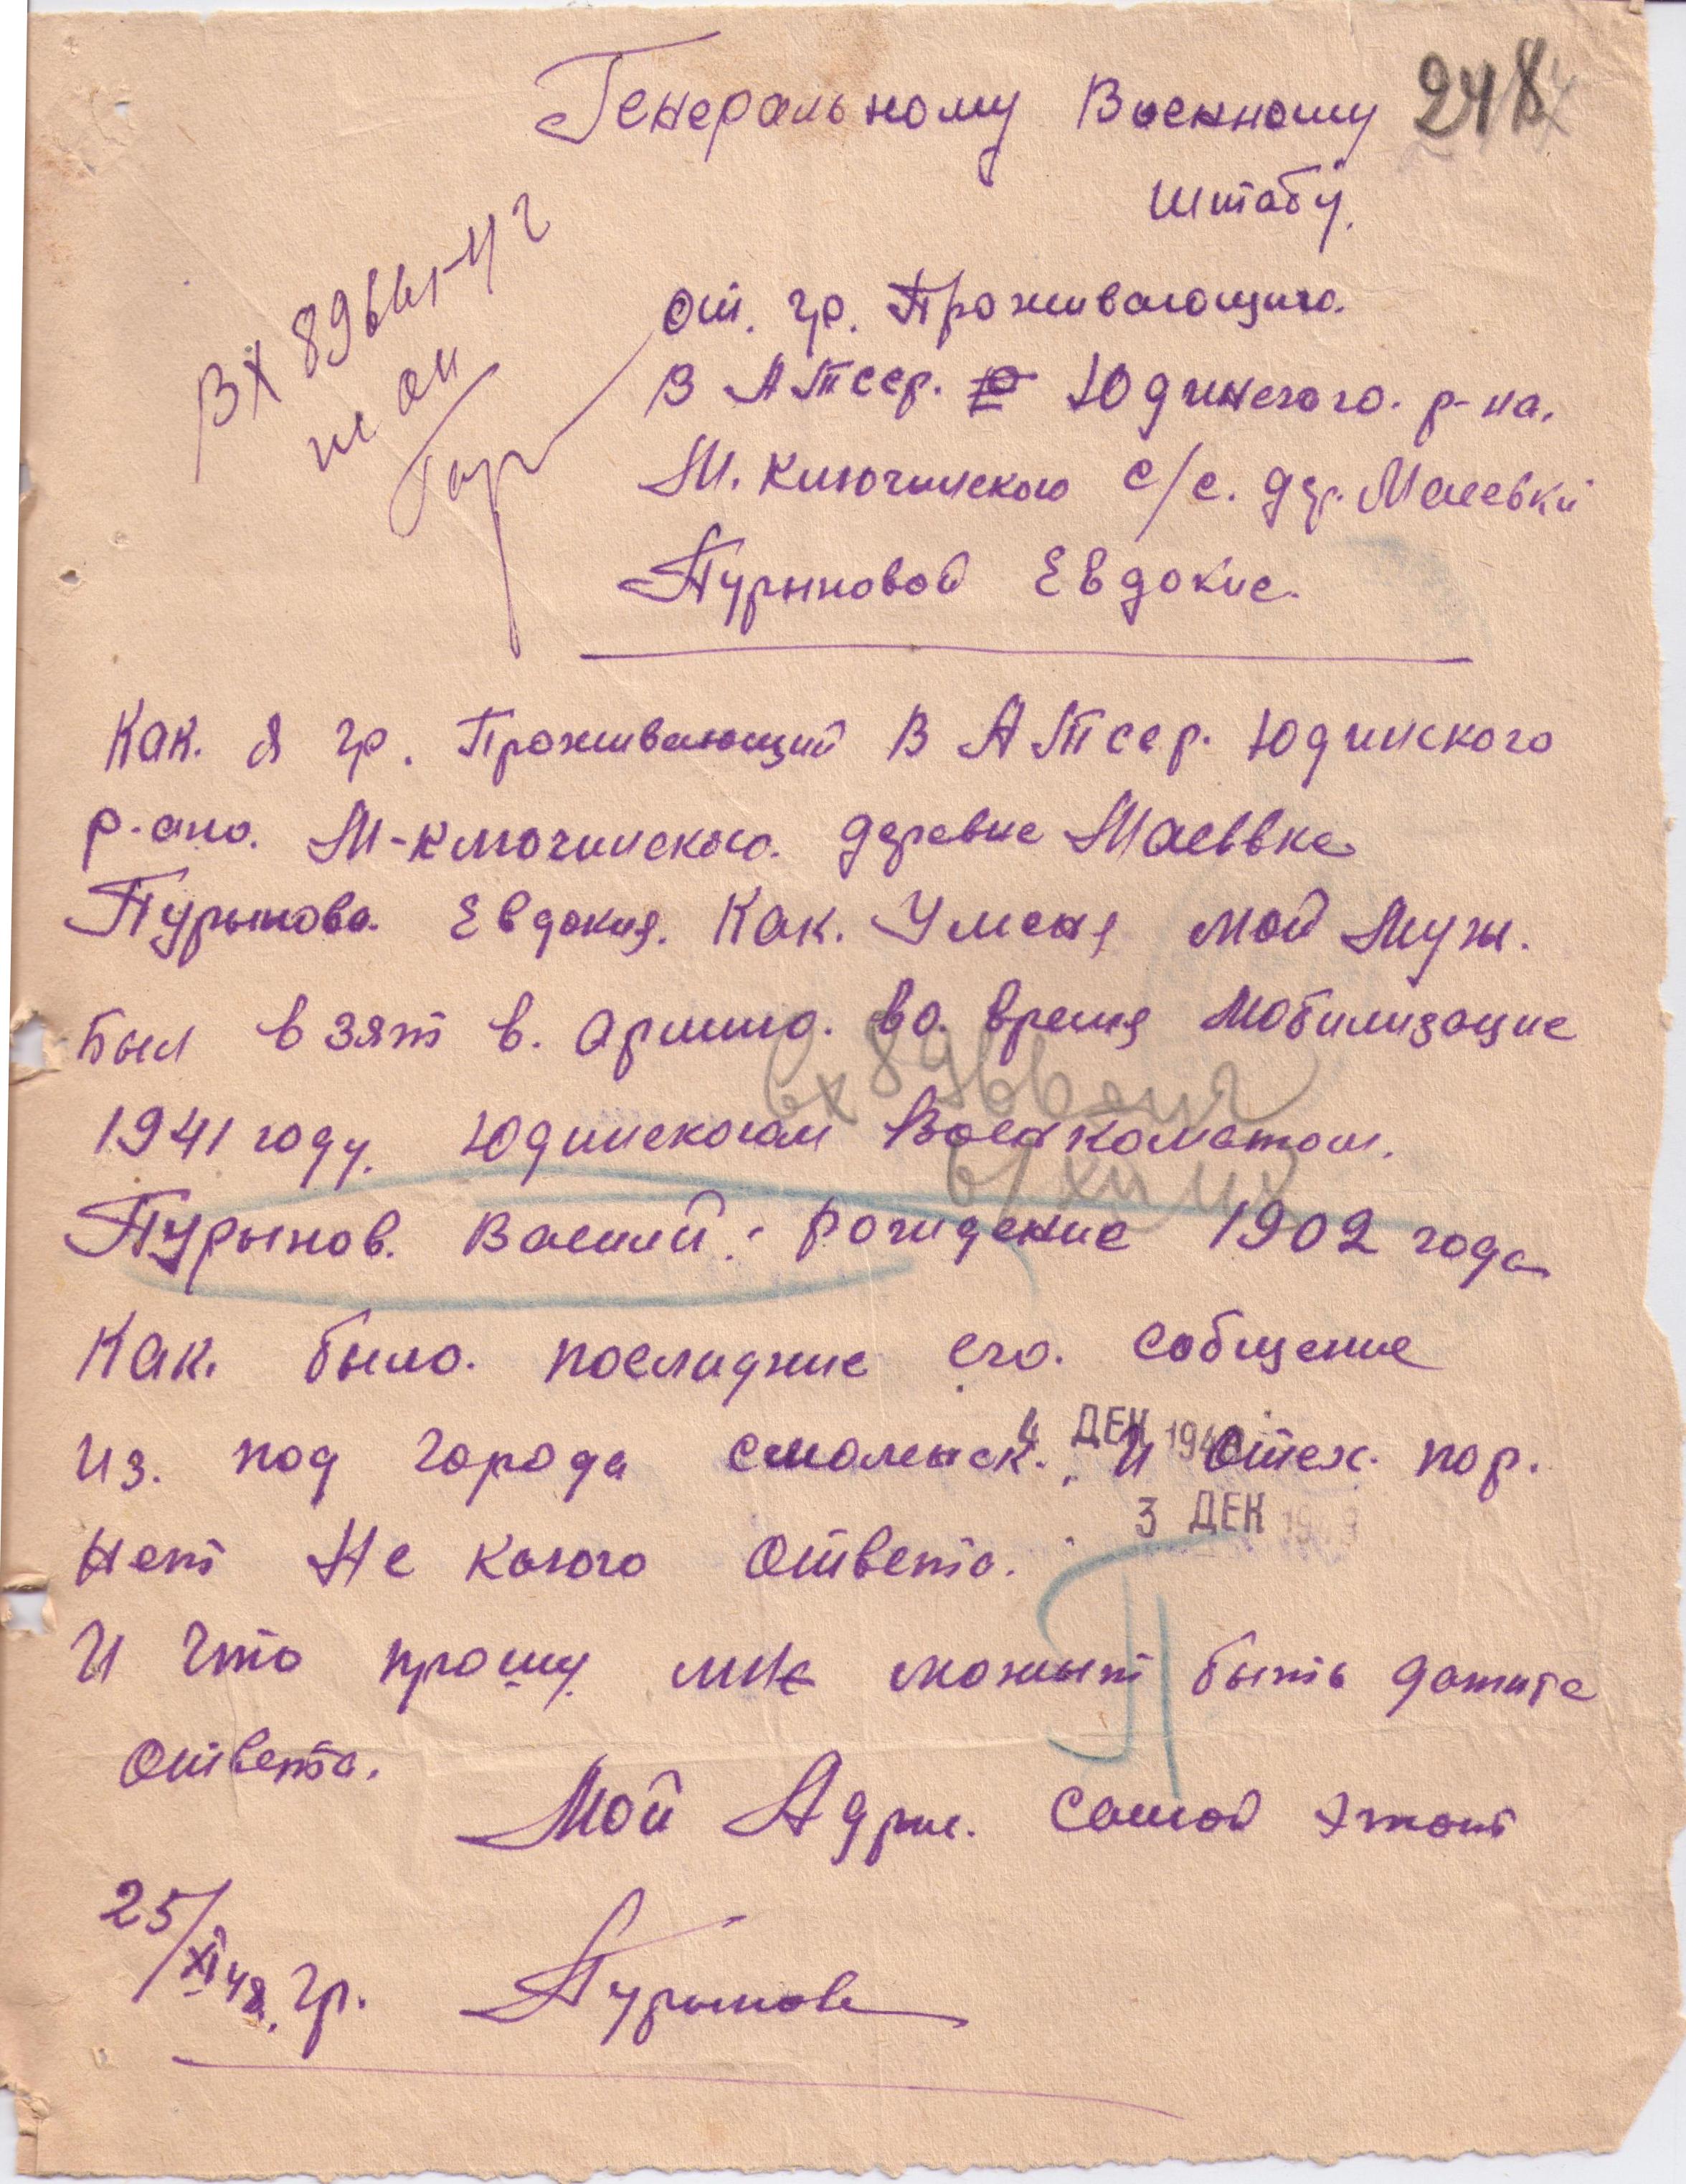 248
Генеральному Военному
Штабу.
от. гр. Проживающиго.
В АТсср. Юдинского. р-на.
М. Ключинского с/с. дер. Маевки
Пурыновой Евдокие.
Как. я гр. Проживающий В АТсср. Юдинского
р-ано. М-ключинского. деревне Маеввке
Пурынова. Евдокия. Как. Уменя мой Муж.
был взят в. армию. во. время мобилизацие
1941 году. Юдинскогом Военкоматом.
Пурынов. Василий: рождение 1902 года
Как. было. последние его. собщение
из. под города смоленск. И Отех. пор.
4 ДЕК 194
3 ДЕК 19
Нет Не какого ответа.
И Что прошу мне можыт быть дадите
ответа.
Мой Адрис. самой этот
25/XI 48. гр. Пурынова